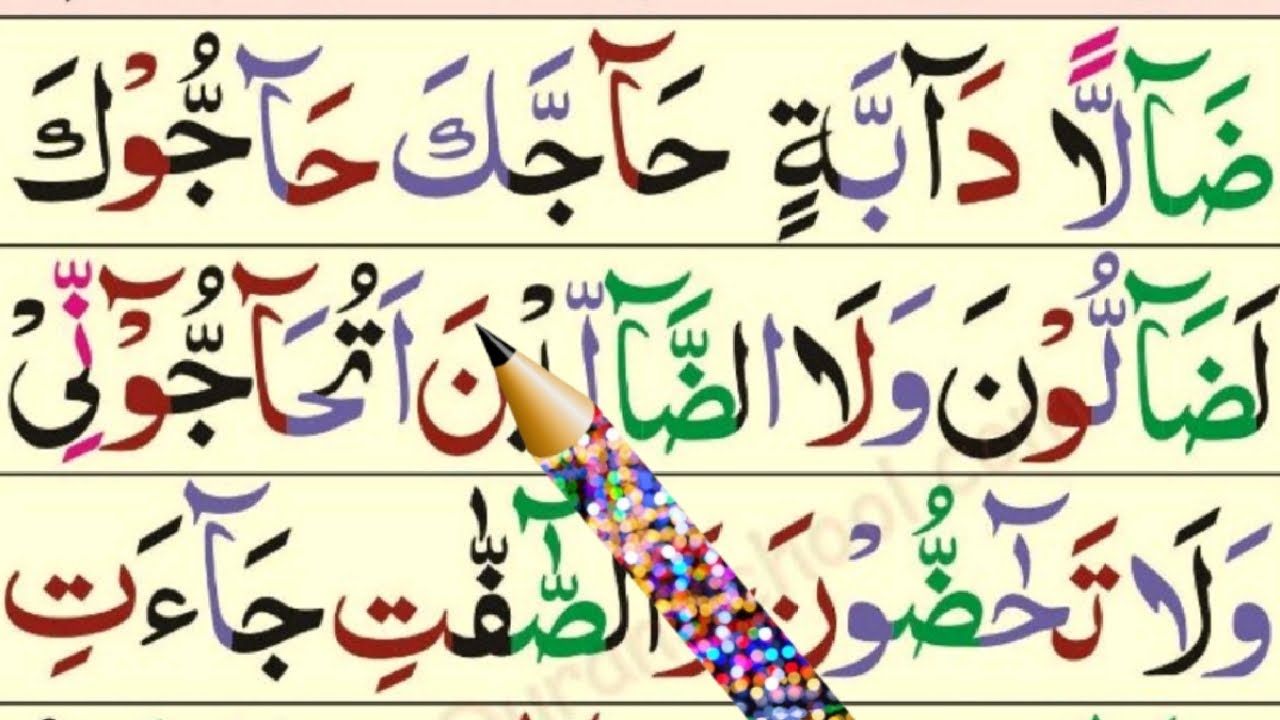 ضَآلًّا دَآبَّةٍ حَآجَّكَ حَآجُّوْكَ
لَضَآلُّوْنَ وَلَا الضَّآلِّيْنَ اَتُحَآجُّوْٓنِّيْ
وَلَا تَحٰٓضُّوْنَ وَالصّٰٓفّٰتِ جَآءَتِ